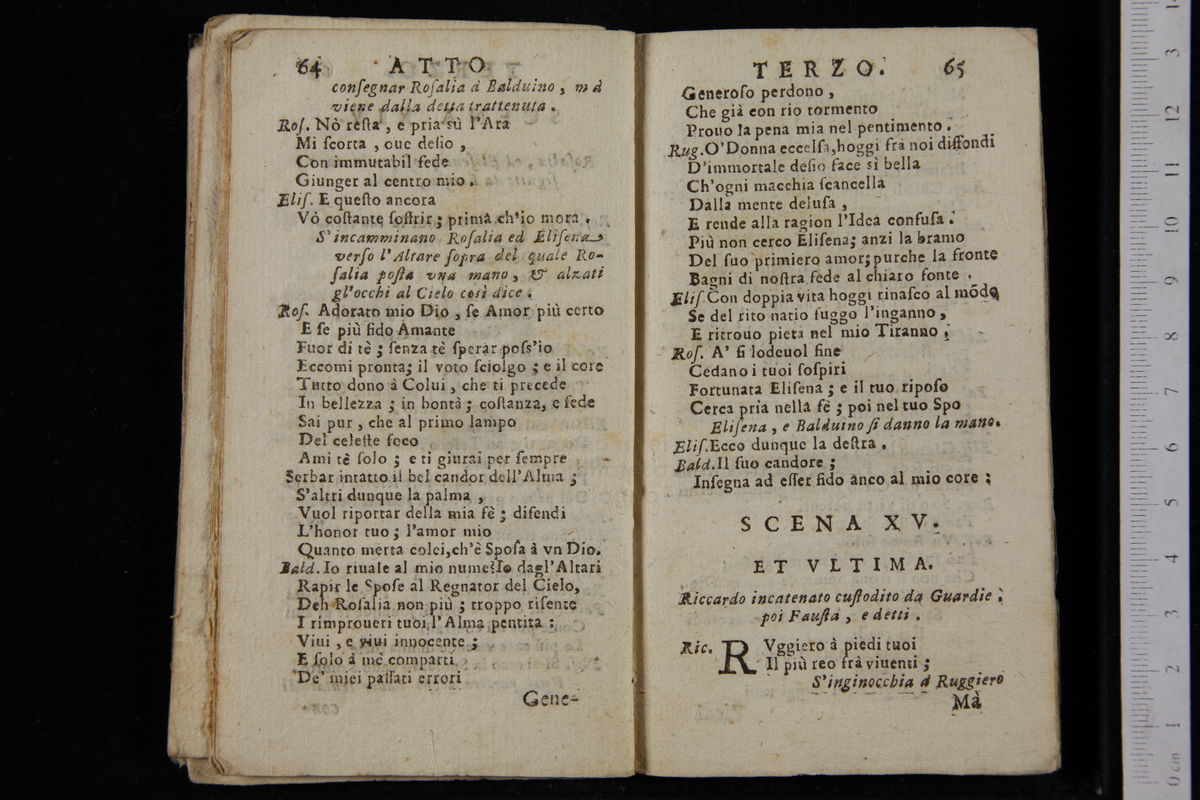 64 ATTO
consegnar Rosalia à Balduino, mà
viene dalla detta trattenuta.
Ros. Nò resta, e pria sù l'Ara
Mi scorta, oue desio,
Con immutabil fede
Giunger al centro mio.
Elis. E questo ancora
Vò costante soffrir; prima ch'io mora.
S'incamminano Rosalia ed Elisena
verso l'Altare sopra del quale Ro-
salia posta vna mano, & alzati
gl'occhi al Cielo così dice.
Ros. Adorato mio Dio, se Amor più certo
E se più fido Amante
Fuor di tè; senza tè sperar poss'io
Eccomi pronta; il voto sciolgo; e il core
Tutto dono à Colui, che ti precede
In bellezza; in bontà; costanza, e fede
Sai pur, che al primo lampo
Del celeste foco
Ami tè solo; e ti giurai per sempre
Serbar intatto il bel candor dell'Alma;
S'altri dunque la palma,
Vuol riportar della mia fè; difendi
L'honor tuo; l'amor mio
Quanto merta colei, ch'è Sposa à vn Dio.
Bald. Io riuale al mio nume? Io dagl'Altari
Rapir le Spose al Regnator del Cielo,
Deh Rosalia non più; troppo risente
I rimproueri tuoi l'Alma pentita:
Viui, e viui innocente;
E solo à mè comparti
De' miei passati errori
Gene-
TERZO. 65
Generoso perdono,
Che già con rio tormento
Prouo la pena mia nel pentimento.
Rug. O'Donna eccelsa, hoggi frà noi diffondi
D'immortale desio face sì bella
Ch'ogni macchia scancella
Dalla mente delusa,
E rende alla ragion l'Idea confusa.
Più non cerco Elisena; anzi la bramo
Del suo primiero amor; purche la fronte
Bagni di nostra fede al chiaro fonte.
Elis. Con doppia vita hoggi rinasco al mõdo
Se del rito natio fuggo l'inganno,
E ritrouo pietà nel mio Tiranno.
Ros. A' sì lodeuol fine
Cedano i tuoi sospiri
Fortunata Elisena; e il tuo riposo
Cerca pria nella fè; poi nel tuo Spo
Elisena, e Balduino si danno la mano.
Elis. Ecco dunque la destra.
Bald. Il suo candore;
Insegna ad esser fido anco al mio core;
SCENA XV.
ET VLTIMA.
Riccardo incatenato custodito da Guardie.
poi Fausta, e detti.
Ric. RVggiero à piedi tuoi
Il più reo frà viuenti;
S'inginocchia à Ruggiero
Mà